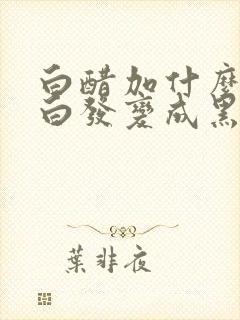 白醋加什麼
白發變成黑
葉非夜